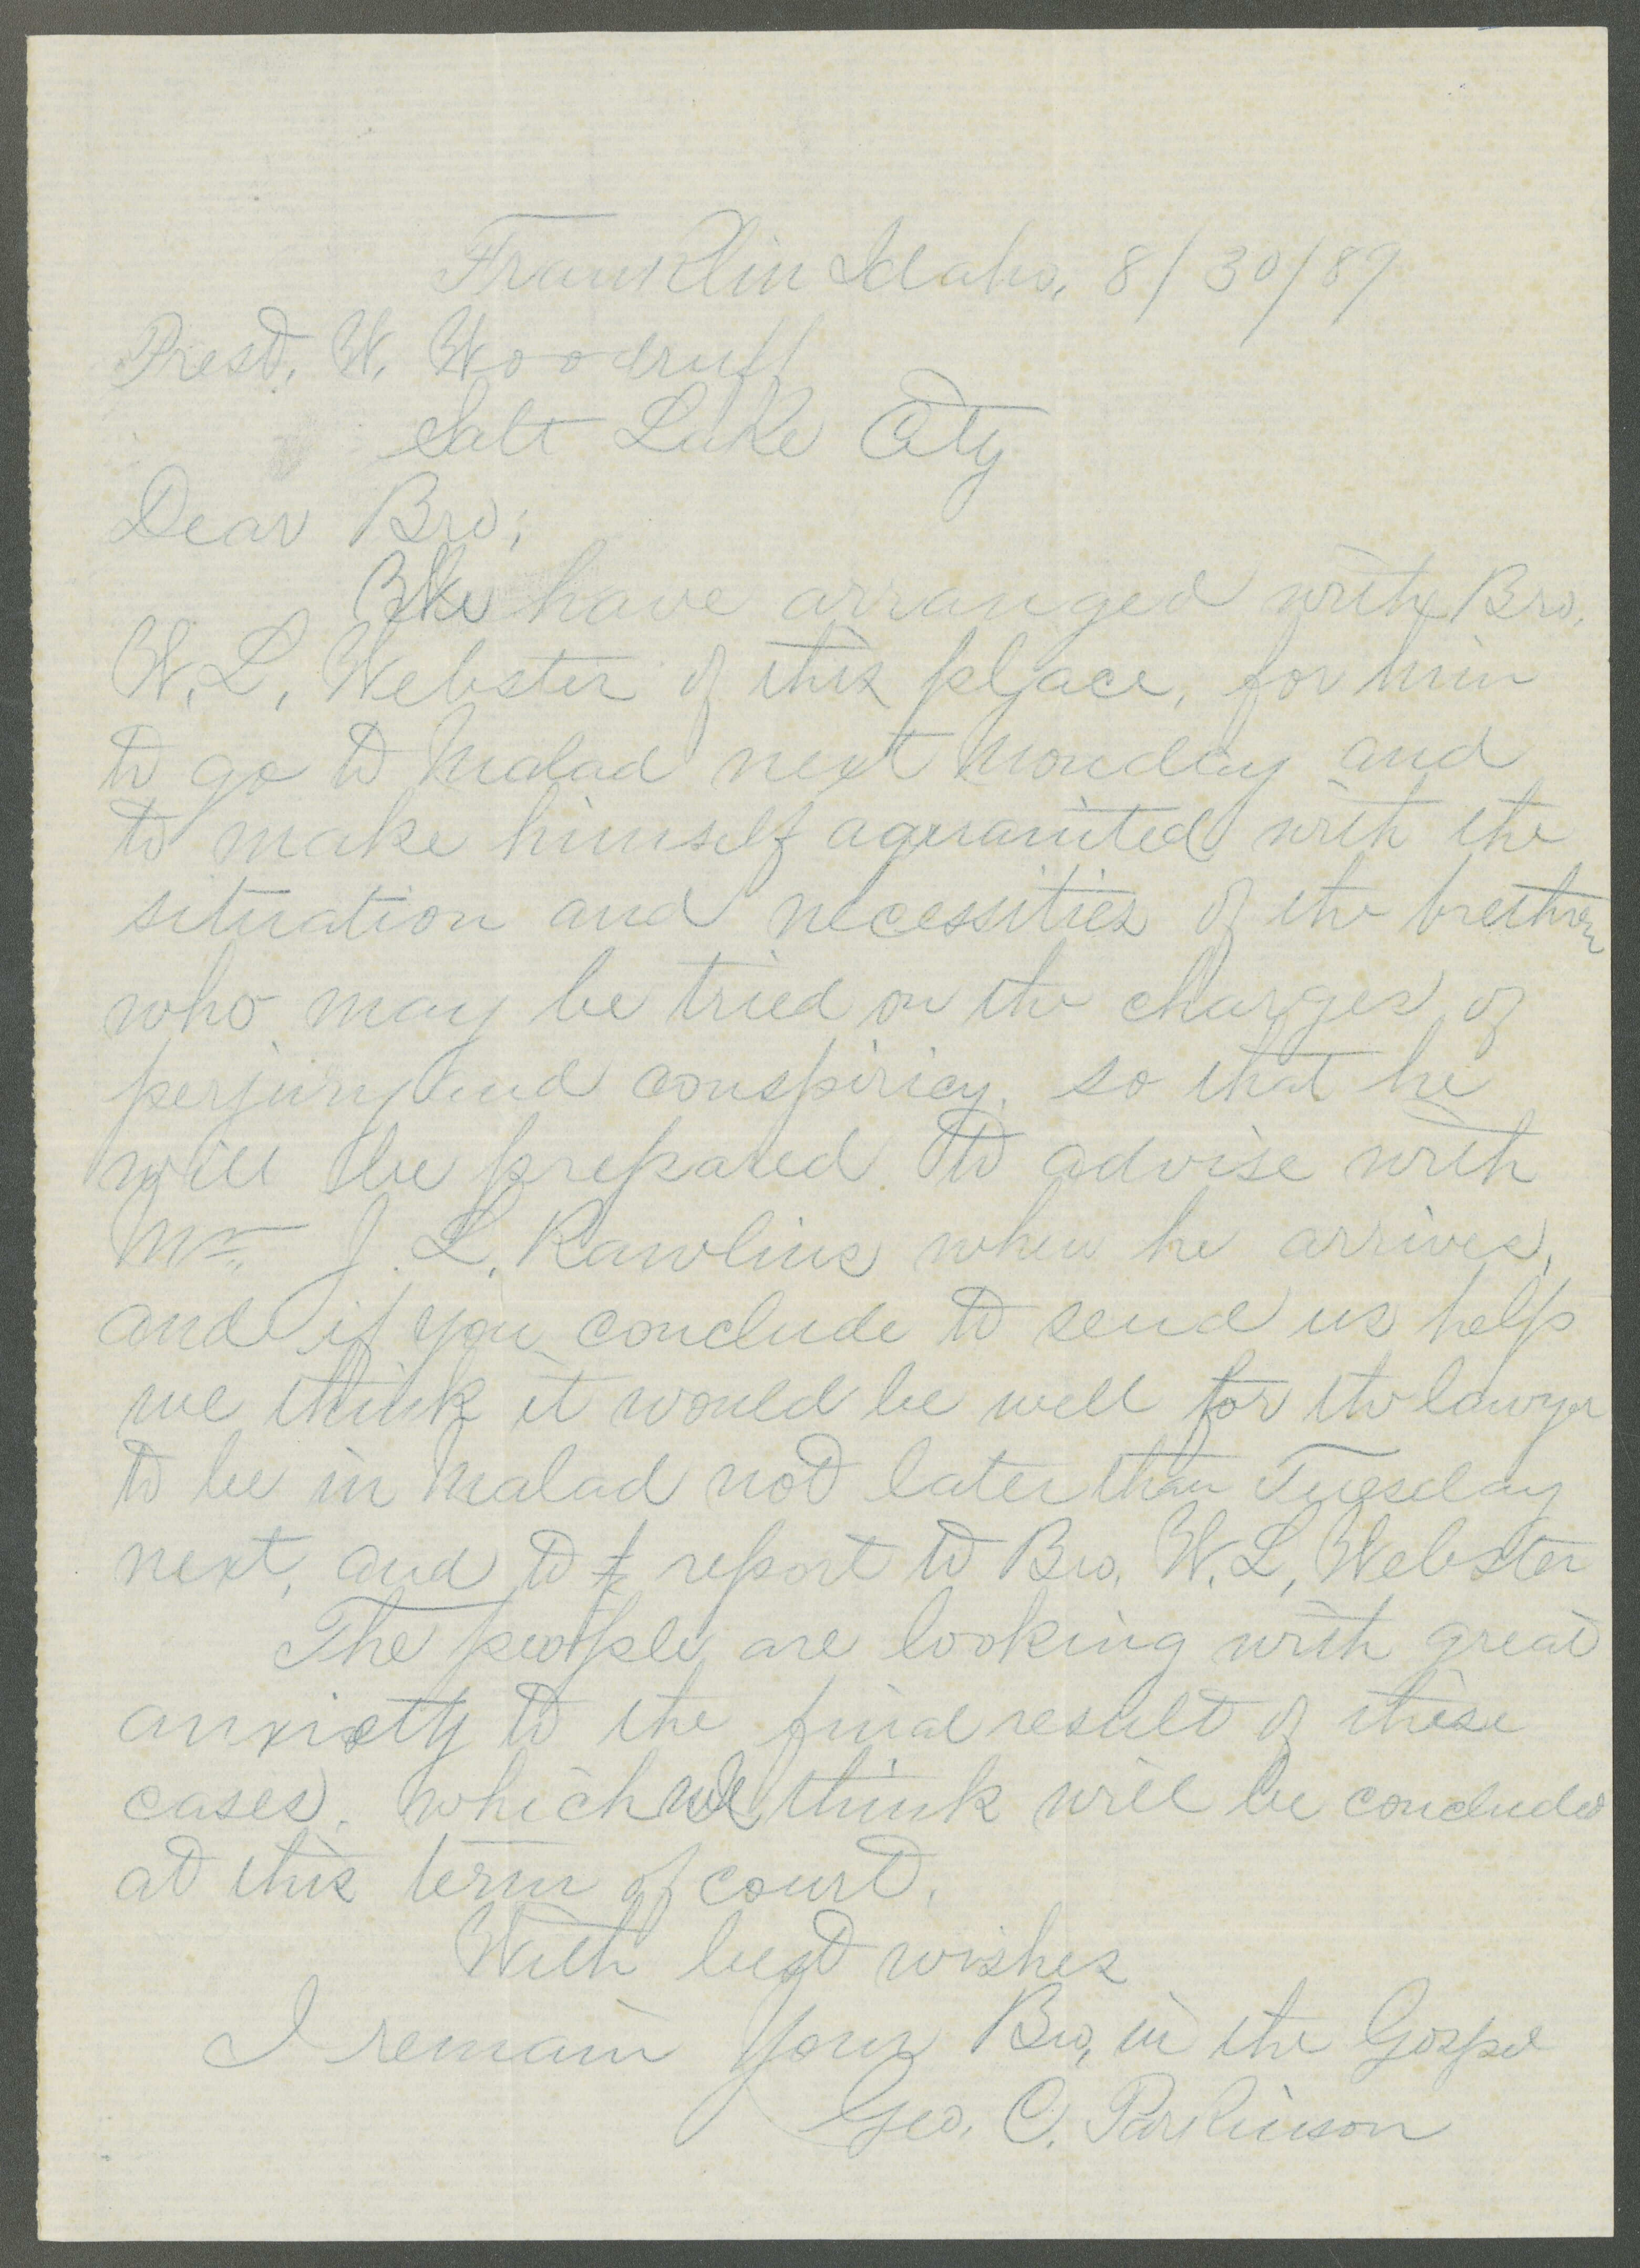 Franklin Idaho, 8/30/89
Prest. W. Woodruff
Salt Lake City
Dear Bro;
We have arranged with Bro.
W. L. Webster of this place, for him
to go to Malad next Monday and
to make himself aquranited with the
situation and necessities of the brethren
who may be tried on the charges of
perjury and conspiricy, so that he
will be prepared to advise with
Mr. J. L. Rawlins when he arrives,
and if you conclude to send us help
we think it would be well for the lawyer
to be in Malad not later than Tuesday
next, and to report to Bro. W. L, Webster
The people are looking with great
anxiety to the final result of these
cases. which we think will be concluded
at this term of court.
With best wishes
I remain Your Bro, in the Gospel
Geo. C. Parkinson